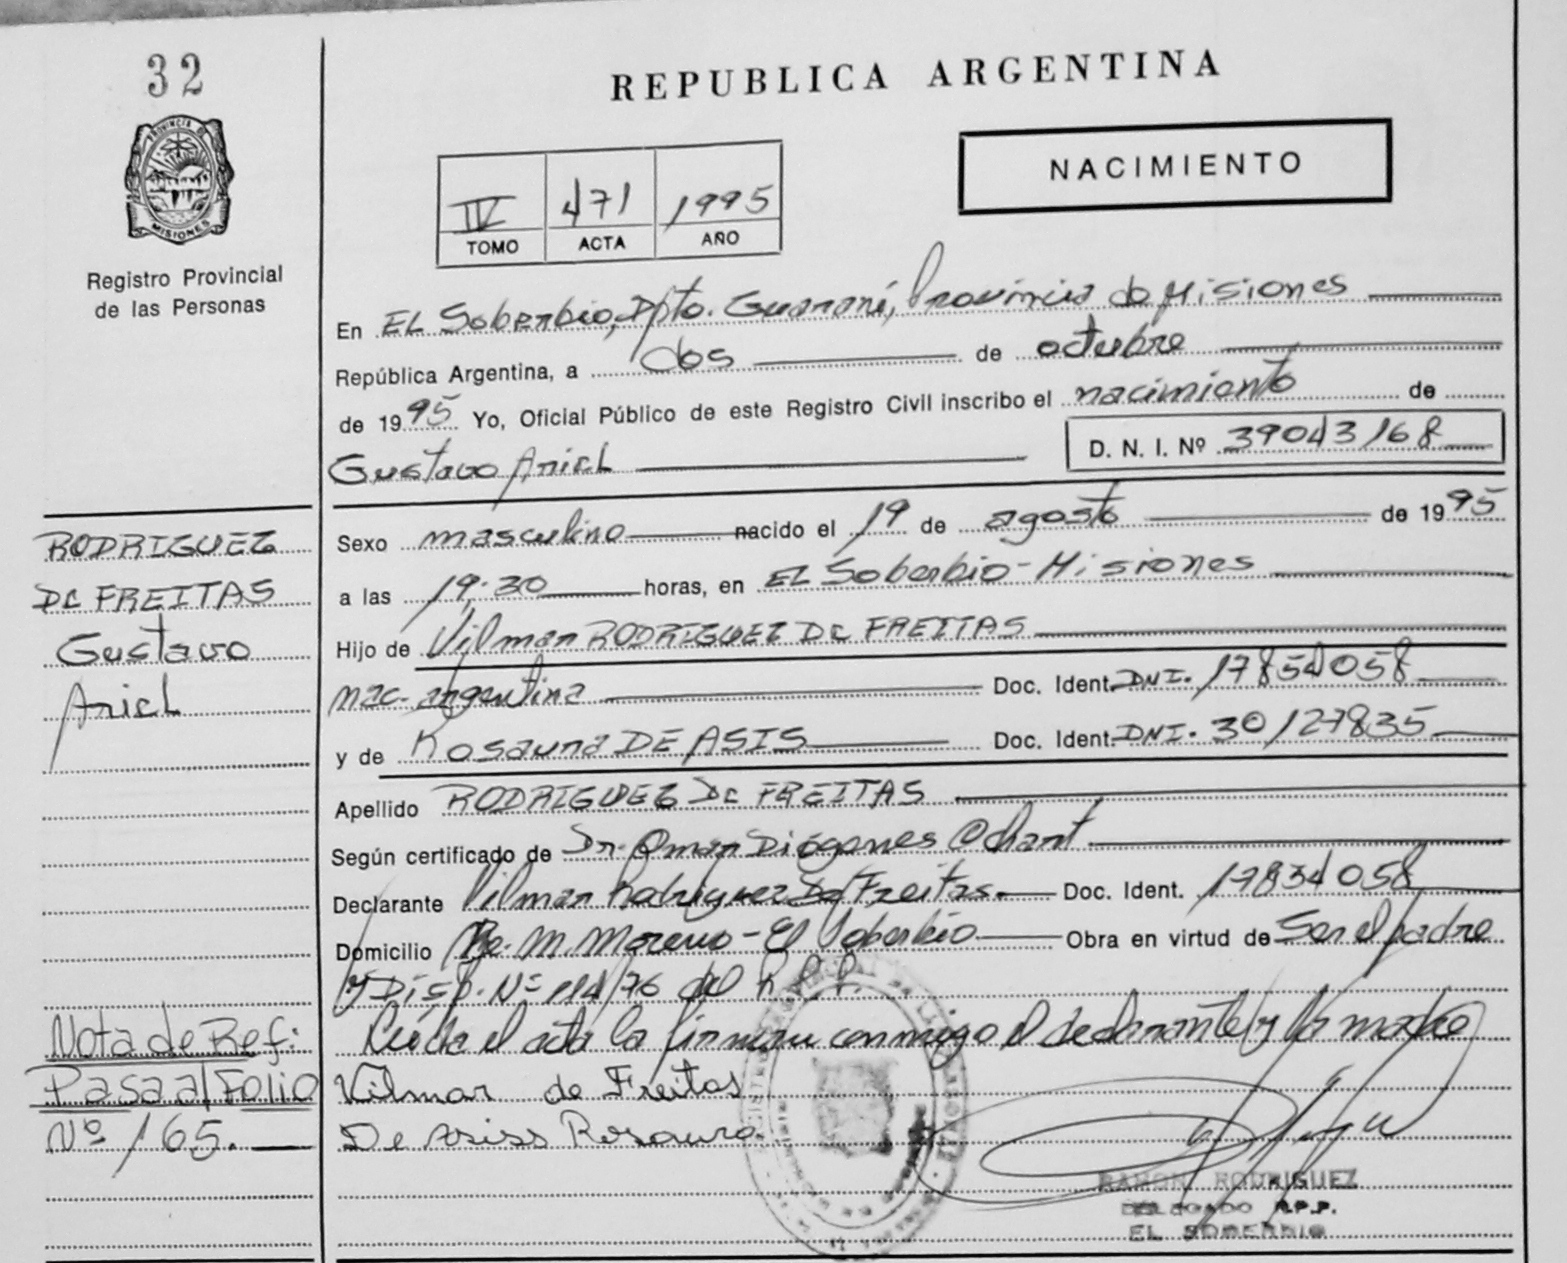 32
REPUBLICA ARGENTINA
PROVINCIA DE
MISIONES
Registro Provincial
de las Personas
NACIMIENTO
IV 471 1995
TOMO ACTA AÑO
En EL Soberbio, Dpto. Guaraní, Provincia de Misiones
República Argentina, a dos de octubre
de 1995 Yo, Oficial Público de este Registro Civil inscribo el nacimiento de
Gustavo Ariel D. N. I. Nº 39043168
RODRIGUEZ
DE FREITAS
Gustavo
Ariel
Sexo masculino nacido el 19 de agosto de 1995
a las 19:30 horas, en EL Soberbio - Misiones
Hijo de Vilmar RODRIGUEZ DE FREITAS
nac. argentina Doc. Ident. DNI. 17854058
y de Rosaura DE ASIS Doc. Ident. DNI. 30127835
Apellido RODRIGUEZ DE FREITAS
Según certificado de Dr. Omar Diógenes
Declarante Vilmar Rodriguez De Freitas.- Doc. Ident. 17834058
Domicilio M. Moreno - El Soberbio Obra en virtud de Ser el padre
y Disp. Nº 114/76 del R.P.P.
Leída el acta la firman conmigo el declarante y la madre
Vilmar de Freitas
De Asiss Rosaura.
Nota de Ref:
Pasa al Folio
Nº 165.
RAMON RODRIGUEZ
DELEGADO R.P.P.
EL SOBERBIO